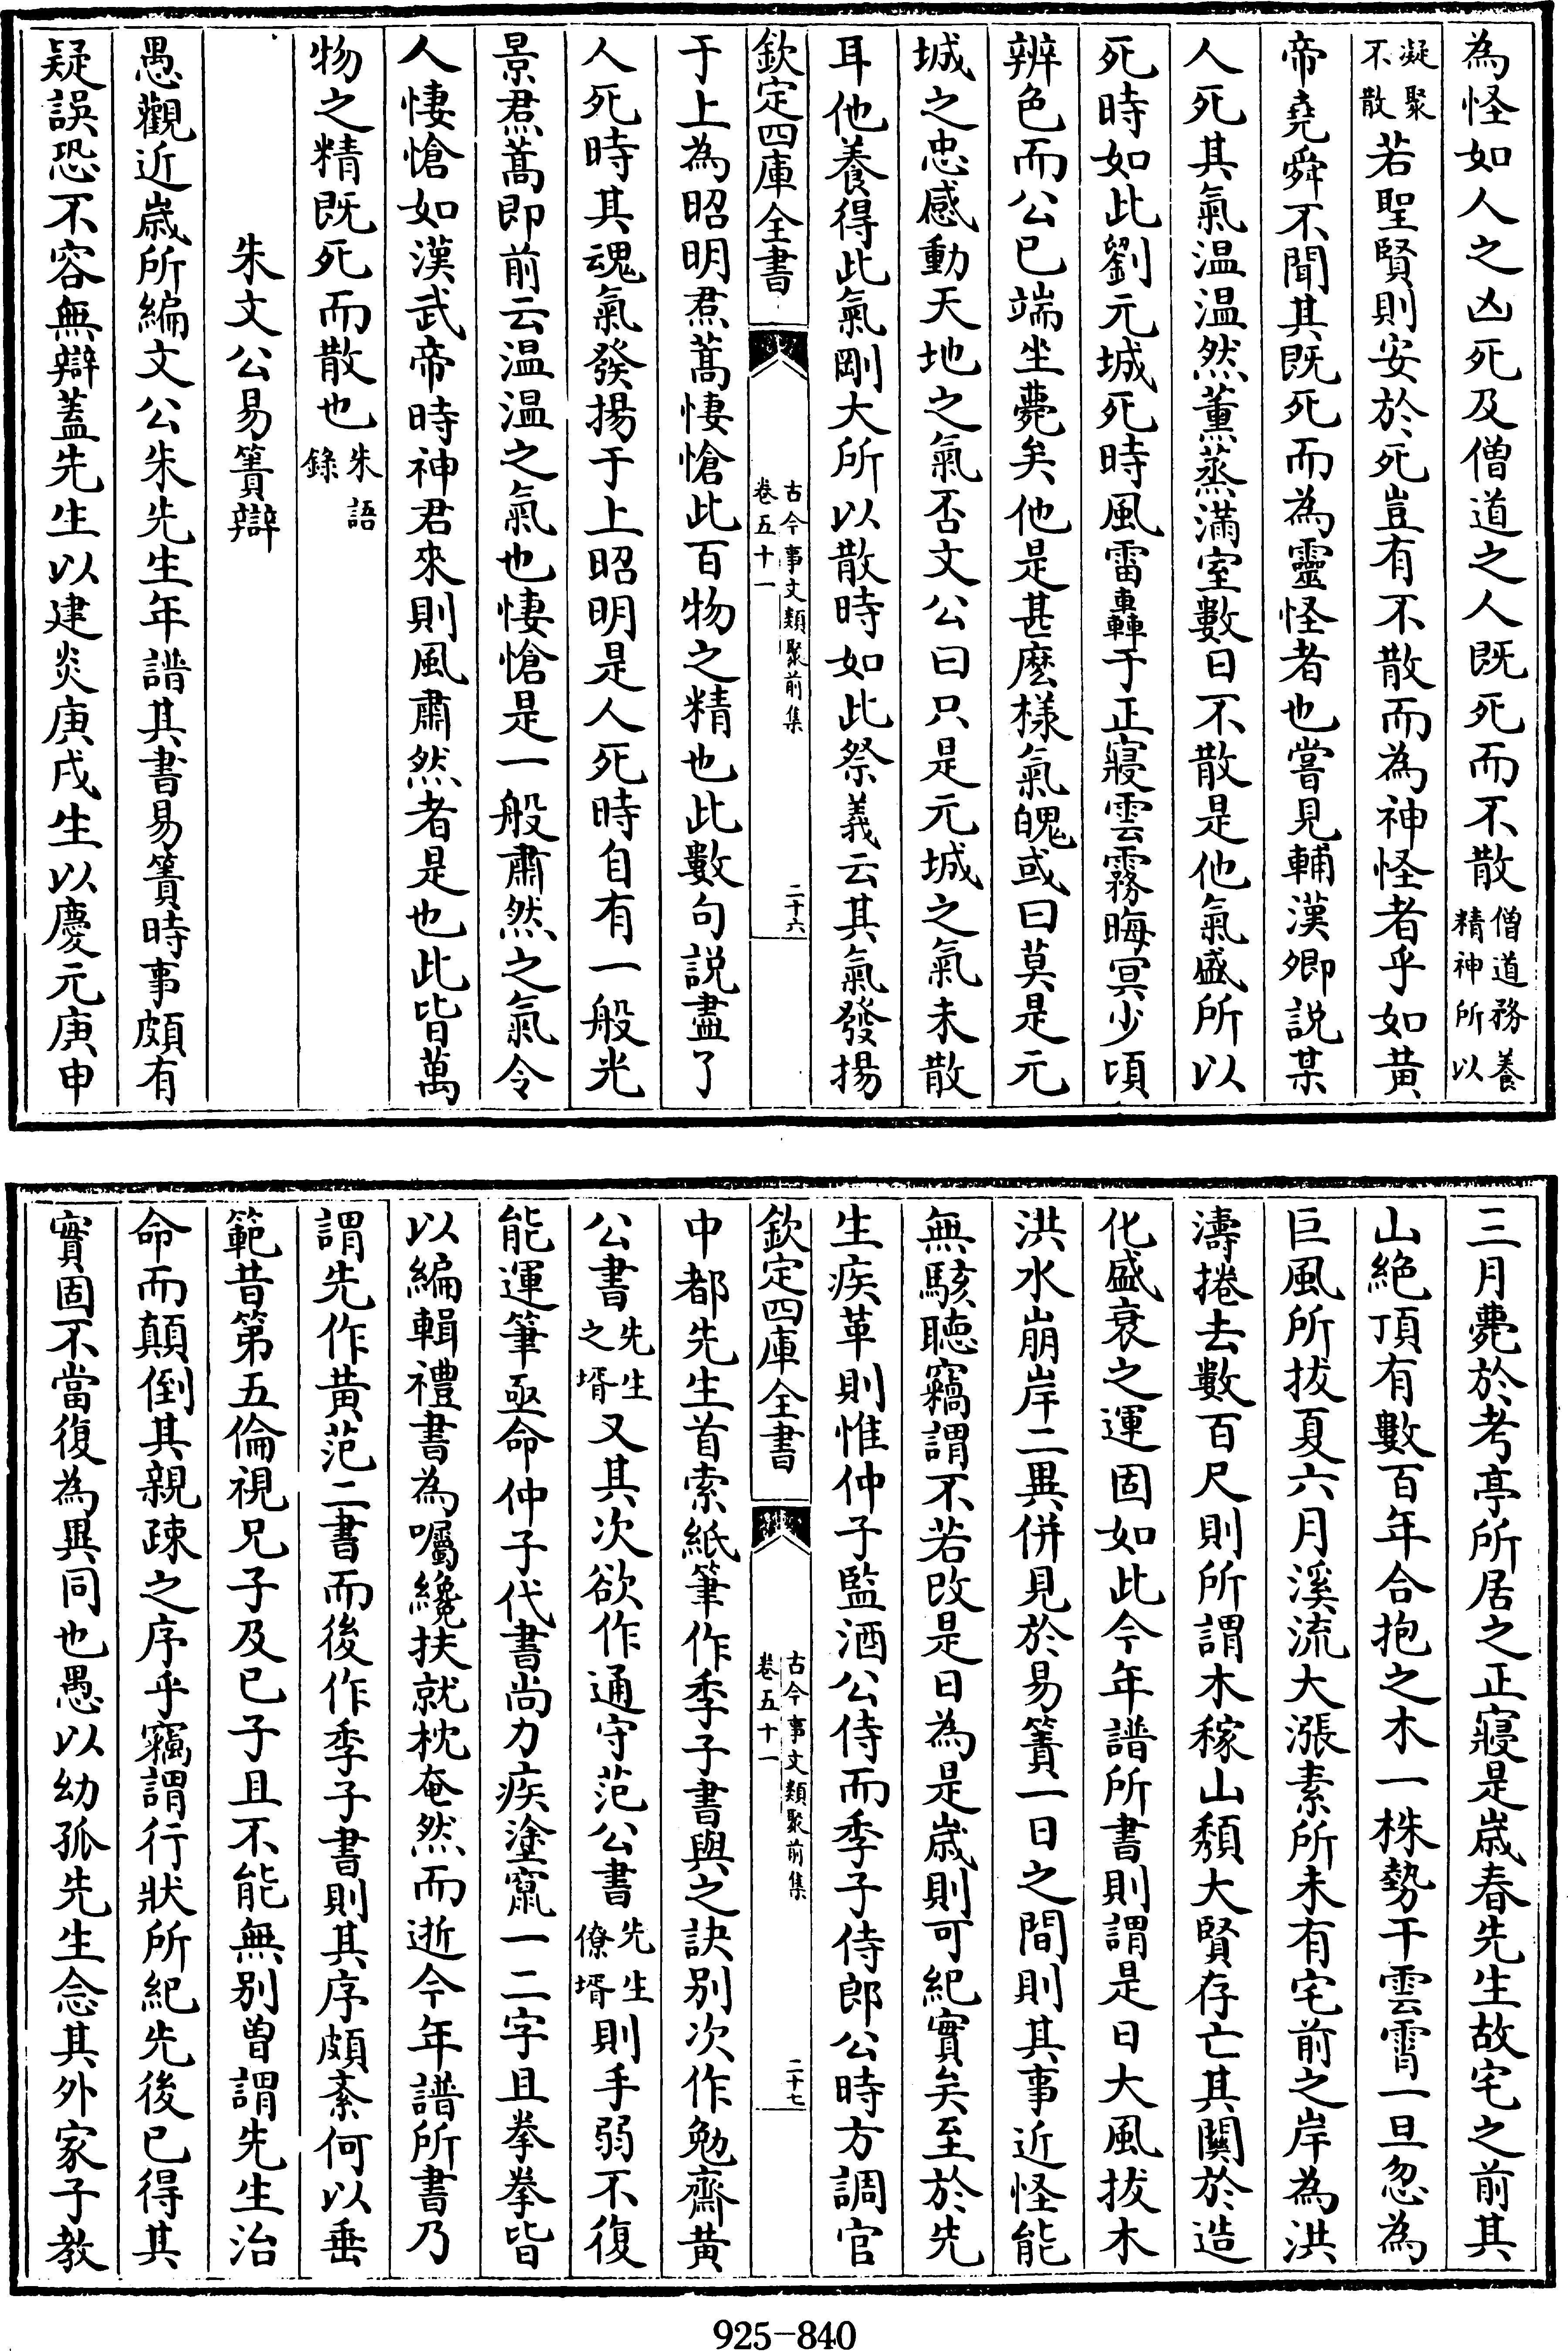 為怪如人之凶死及僧道之人既死而不散僧道務養精神所以
凝聚不散若聖賢則安於死豈有不散而為神怪者乎如黃
帝堯舜不聞其既死而為靈怪者也嘗見輔漢卿説某
人死其氣温温然薰蒸滿室數日不散是他氣盛所以
死時如此劉元城死時風雷轟于正寢雲霧晦㝠少頃
辨色而公已端坐薨矣他是甚麽様氣魄或曰莫是元
城之忠感動天地之氣否文公曰只是元城之氣未散
耳他養得此氣剛大所以散時如此祭義云其氣發揚
欽定四庫全書 古今事文類聚前集 卷五十一 二十六
于上為昭明焄蒿悽愴此百物之精也此數句説盡了
人死時其魂氣發揚于上昭明是人死時自有一般光
景焄蒿即前云温温之氣也悽愴是一般肅然之氣令
人悽愴如漢武帝時神君來則風肅然者是也此皆萬
物之精既死而散也朱語錄
朱文公易簀辯
愚觀近嵗所編文公朱先生年譜其書易簀時事頗有
疑誤恐不容無辯蓋先生以建炎庚戌生以慶元庚申
三月薨於考亭所居之正寢是嵗春先生故宅之前其
山絶頂有數百年合抱之木一株勢干雲霄一旦忽為
巨風所拔夏六月溪流大漲素所未有宅前之岸為洪
濤捲去數百尺則所謂木稼山頽大賢存亡其闗於造
化盛衰之運固如此今年譜所書則謂是日大風拔木
洪水崩岸二異併見於易簀一日之間則其事近怪能
無駭聴竊謂不若改是日為是嵗則可紀實矣至於先
生疾革則惟仲子監酒公侍而季子侍郎公時方調官
欽定四庫全書 古今事文類聚前集 卷五十一 二十七
中都先生首索紙筆作季子書與之訣别次作勉齋黄
公書先生之壻又其次欲作通守范公書先生僚壻則手弱不復
能運筆亟命仲子代書尚力疾塗竄一二字且拳拳皆
以編輯禮書為囑纔扶就枕奄然而逝今年譜所書乃
謂先作黄范二書而後作季子書則其序頗紊何以垂
範昔第五倫視兄子及已子且不能無别曽謂先生治
命而顛倒其親疎之序乎竊謂行狀所紀先後已得其
實固不當復為異同也愚以幼孤先生念其外家子教
925-840